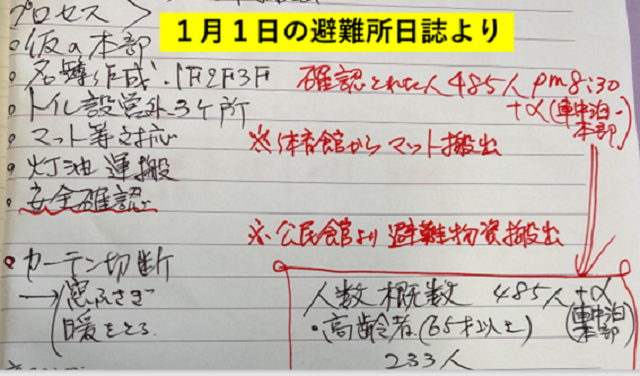 プロセス>
1月1日の避難所日誌より
・仮の本部
・名簿作成.1F2F3F
確認とれた人485人 pm8:30
+α(車中泊・本部)
・トイレ設営外3ケ所
・マット等対応
※体育館からマット搬出
・灯油運搬
・安全確認
※公民館より避難物資搬出
・カーテン切断
→窓ふさぎ
暖をとる
人数概数 485人+α
(車中泊 本部)
・高齢者(65才以上)
233人